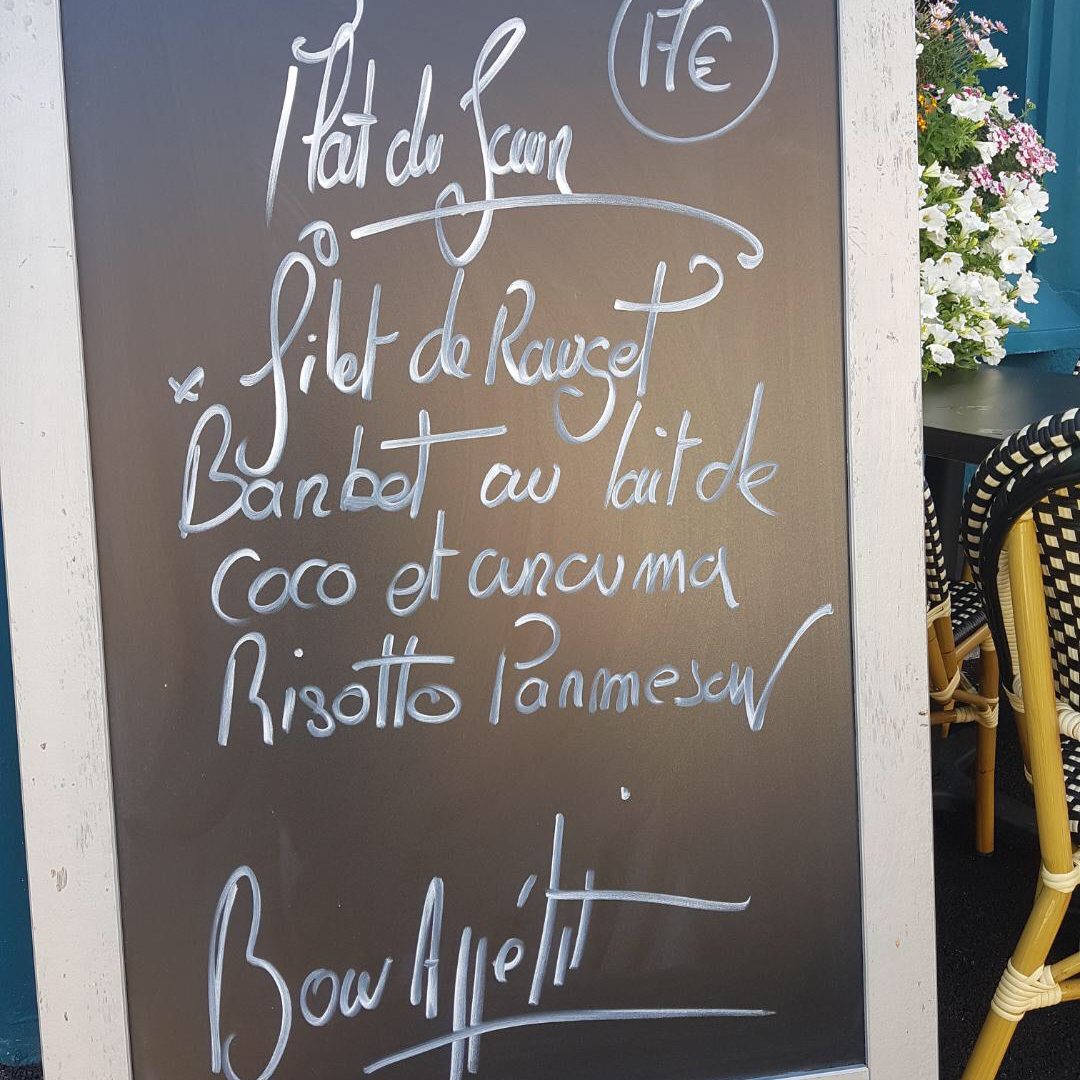 Plat du Jour
17€
* filet de Rouget
Barbet au lait de
coco et curcuma
Risotto Parmesan
Bon Appétit